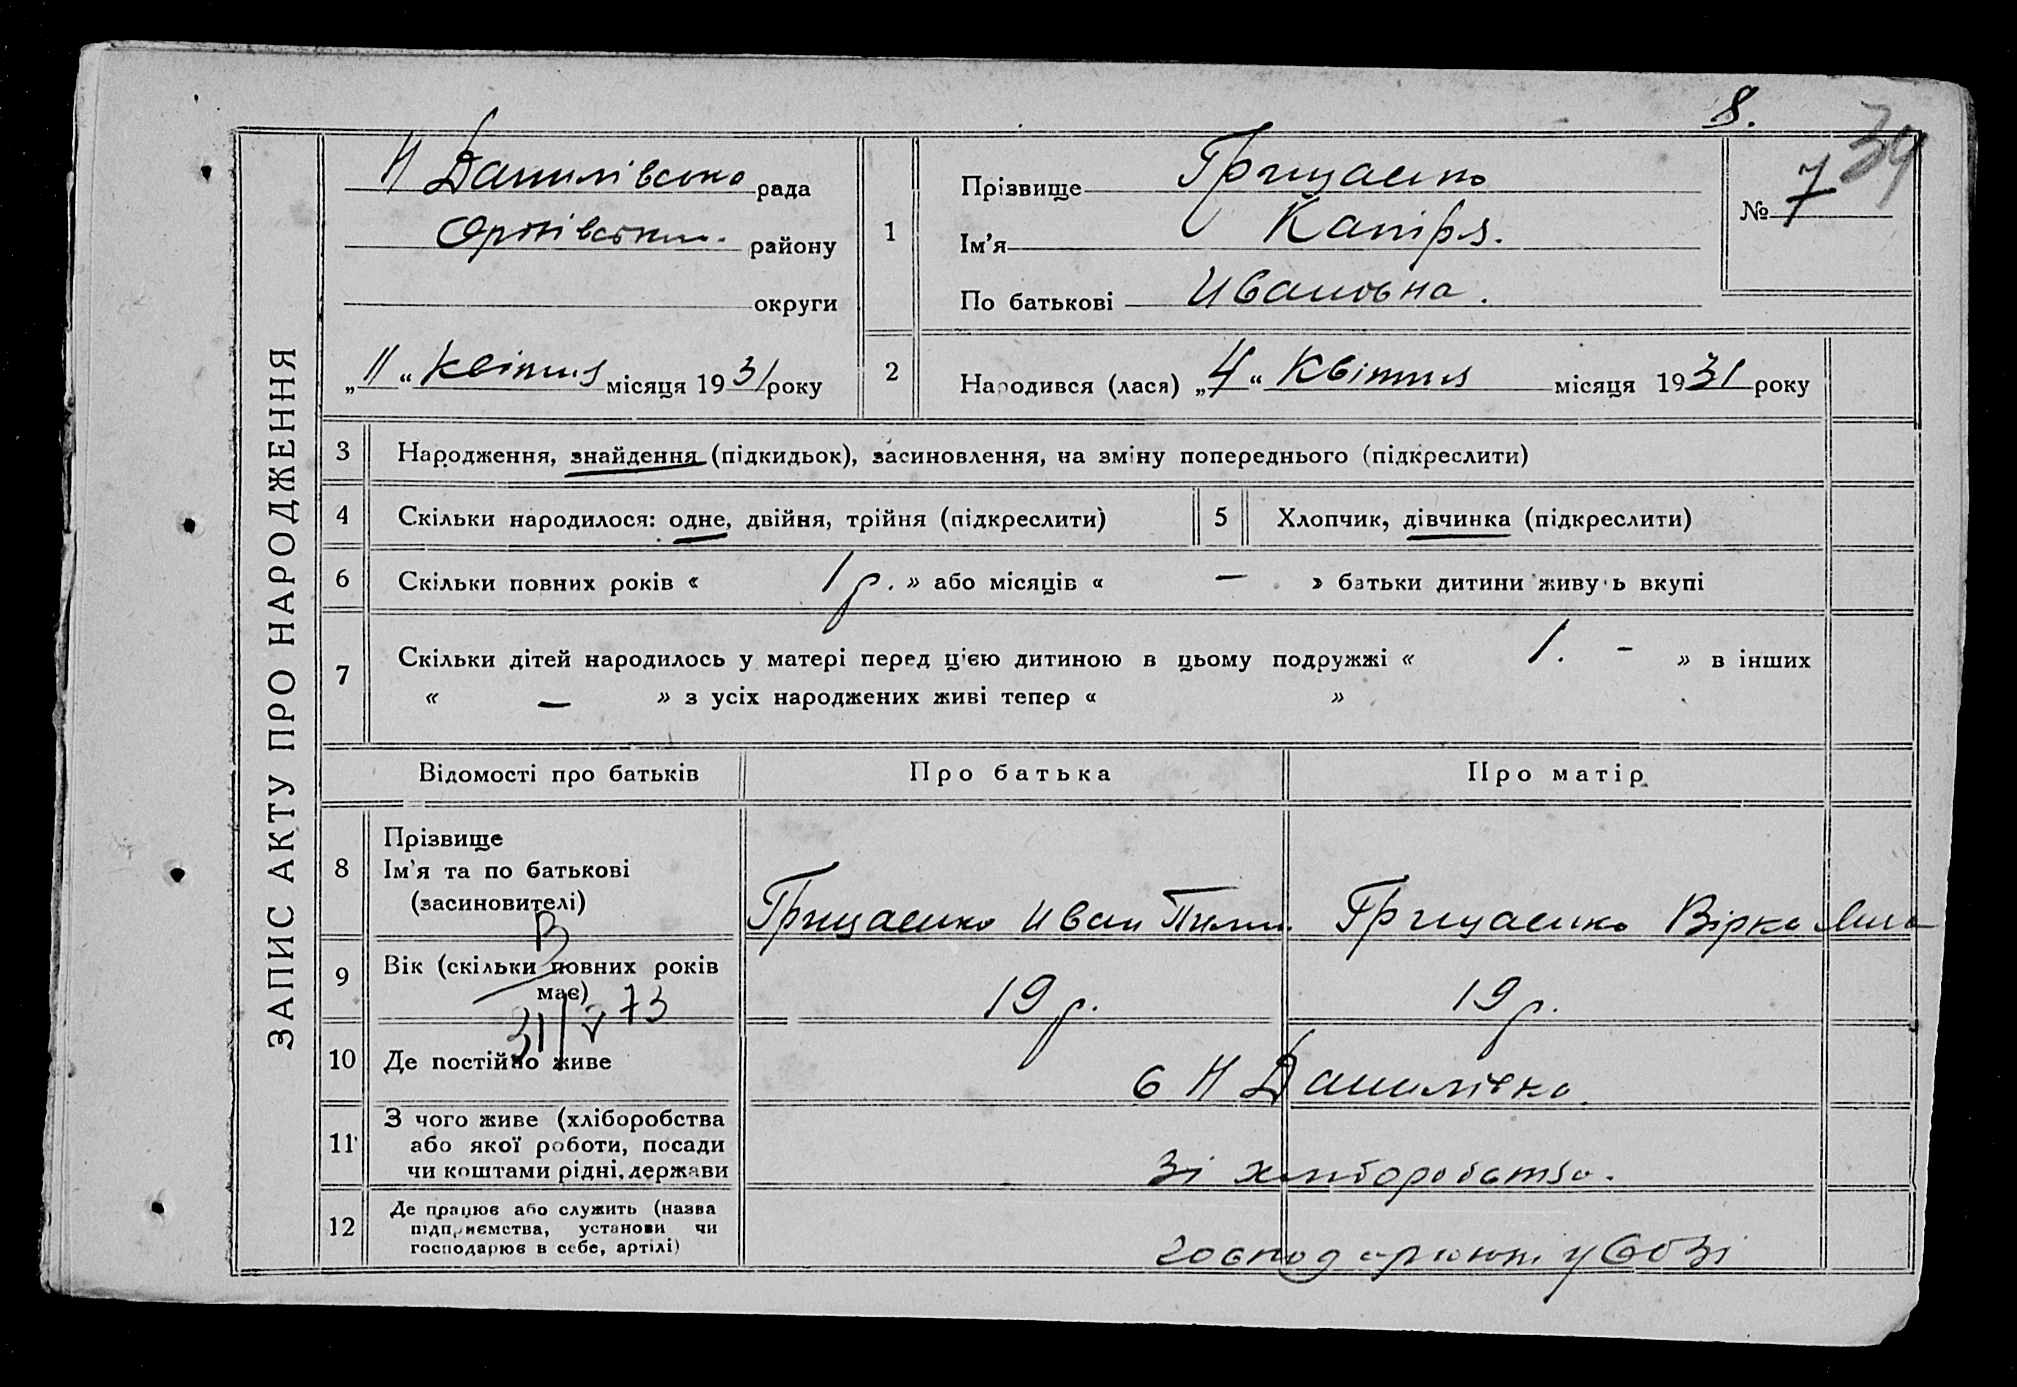 8.
39
ЗАПИС АКТУ ПРО НАРОДЖЕННЯ
Н Данилівська рада
району
округи
„11“ Квітня місяця 1931 року
1
Прізвище Грищенко
Ім'я
По батькові Ивановна.
№ 7
2 Народився (лася) „4“ Квітня місяця 1931 року
3 Народження, знайдення (підкидьок), засиновлення, на зміну попереднього (підкреслити)
4 Скільки народилося: одне, двійня, трійня (підкреслити)
5 Хлопчик, дівчинка (підкреслити)
6 Скільки повних років « 1 р. » або місяців « — » батьки дитини живуть вкупі
7 Скільки дітей народилось у матері перед цією дитиною в цьому подружжі « 1. - » в інших
« — » з усіх народжених живі тепер « »
Відомості про батьків
Про батька
Про матір
8 Прізвище
Ім'я та по батькові
(засиновителі)
Грищенко Иван
Грищенко Вірка
9 Вік (скільки повних років
має)
19 р.
19 р.
31/V 73
10 Де постійно живе
с Н Данилівка.
11 З чого живе (хліборобства
або якої роботи, посади
чи коштами рідні, держави
Зі хліборобства.
12 Де працює або служить (назва
підприємства, установи чи
господарює в себе, артілі)
господарюют у СОЗі